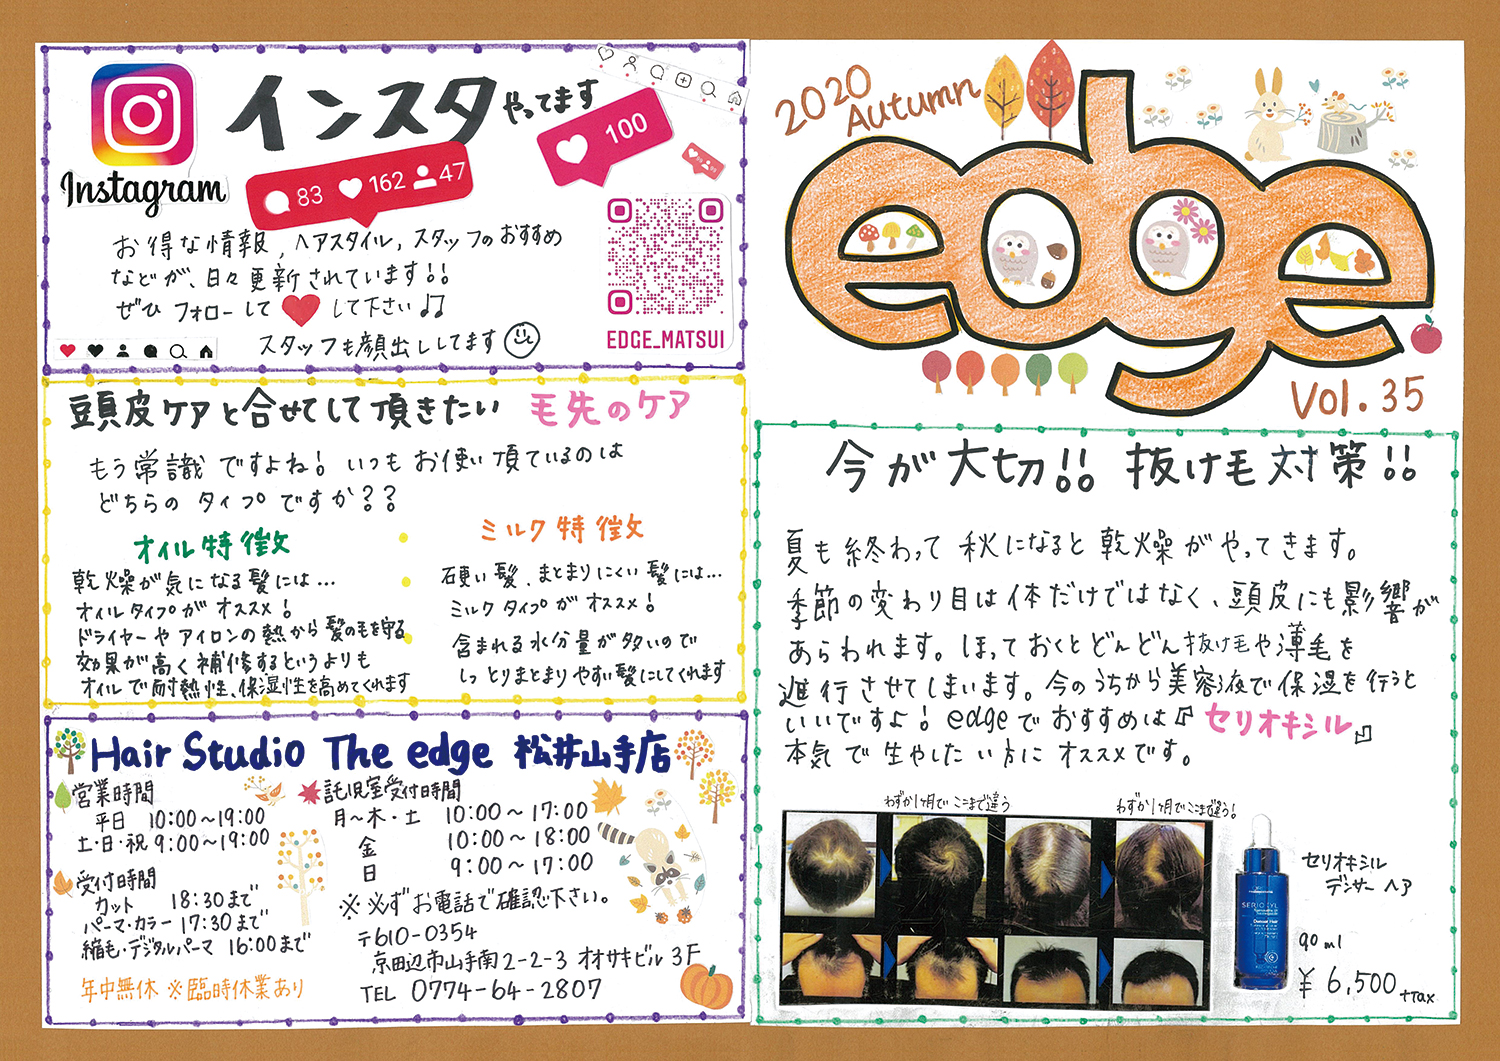 Instagram
インスタ やってます
83 162 47
100
お得な情報, ヘアスタイル, スタッフのおすすめ
などが、日々更新されています!!
ぜひ フォローして して下さい♪♫
スタッフも顔出ししてます
EDGE_MATSUI
頭皮ケアと合せてして頂きたい 毛先のケア
もう常識ですよね! いつもお使い頂ているのは
どちらの タイプですか??
オイル特徴
乾燥が気になる髪には...
オイルタイプがオススメ!
ドライヤーやアイロンの熱から髪の毛を守る
効果が高く補修するというよりも
オイルで耐熱性、保湿性を高めてくれます
ミルク特徴
硬い髪、まとまりにくい髪には...
ミルクタイプがオススメ!
含まれる水分量が多いので
しっとりまとまりやすい髪にしてくれます
Hair Studio The edge 松井山手店
営業時間
平日 10:00~19:00
土・日・祝 9:00~19:00
受付時間
カット 18:30まで
パーマ・カラー 17:30まで
縮毛・デジタルパーマ 16:00まで
年中無休 ※臨時休業あり
託児室受付時間
月~木・土 10:00~17:00
金 10:00~18:00
日 9:00~17:00
※必ずお電話で確認下さい。
〒610-0354
京田辺市山手南2-2-3 オオサキビル 3F
TEL 0774-64-2807
2020
Autumn
edge
Vol.35
今が大切!! 抜け毛対策!!
夏も終わって 秋になると 乾燥がやってきます。
季節の変わり目は体だけではなく、頭皮にも影響が
あらわれます。ほっておくとどんどん抜け毛や薄毛を
進行させてしまいます。今のうちから美容液で保湿を行うと
いいですよ! edgeでおすすめは『セリオキシル』
本気で生やしたい方にオススメです。
わずか1ヶ月でここまで違う
わずか1ヶ月でここまで違う!
SERIOXYL
Denser Hair
セリオキシル
デンサーヘア
90ml
¥6,500 +tax